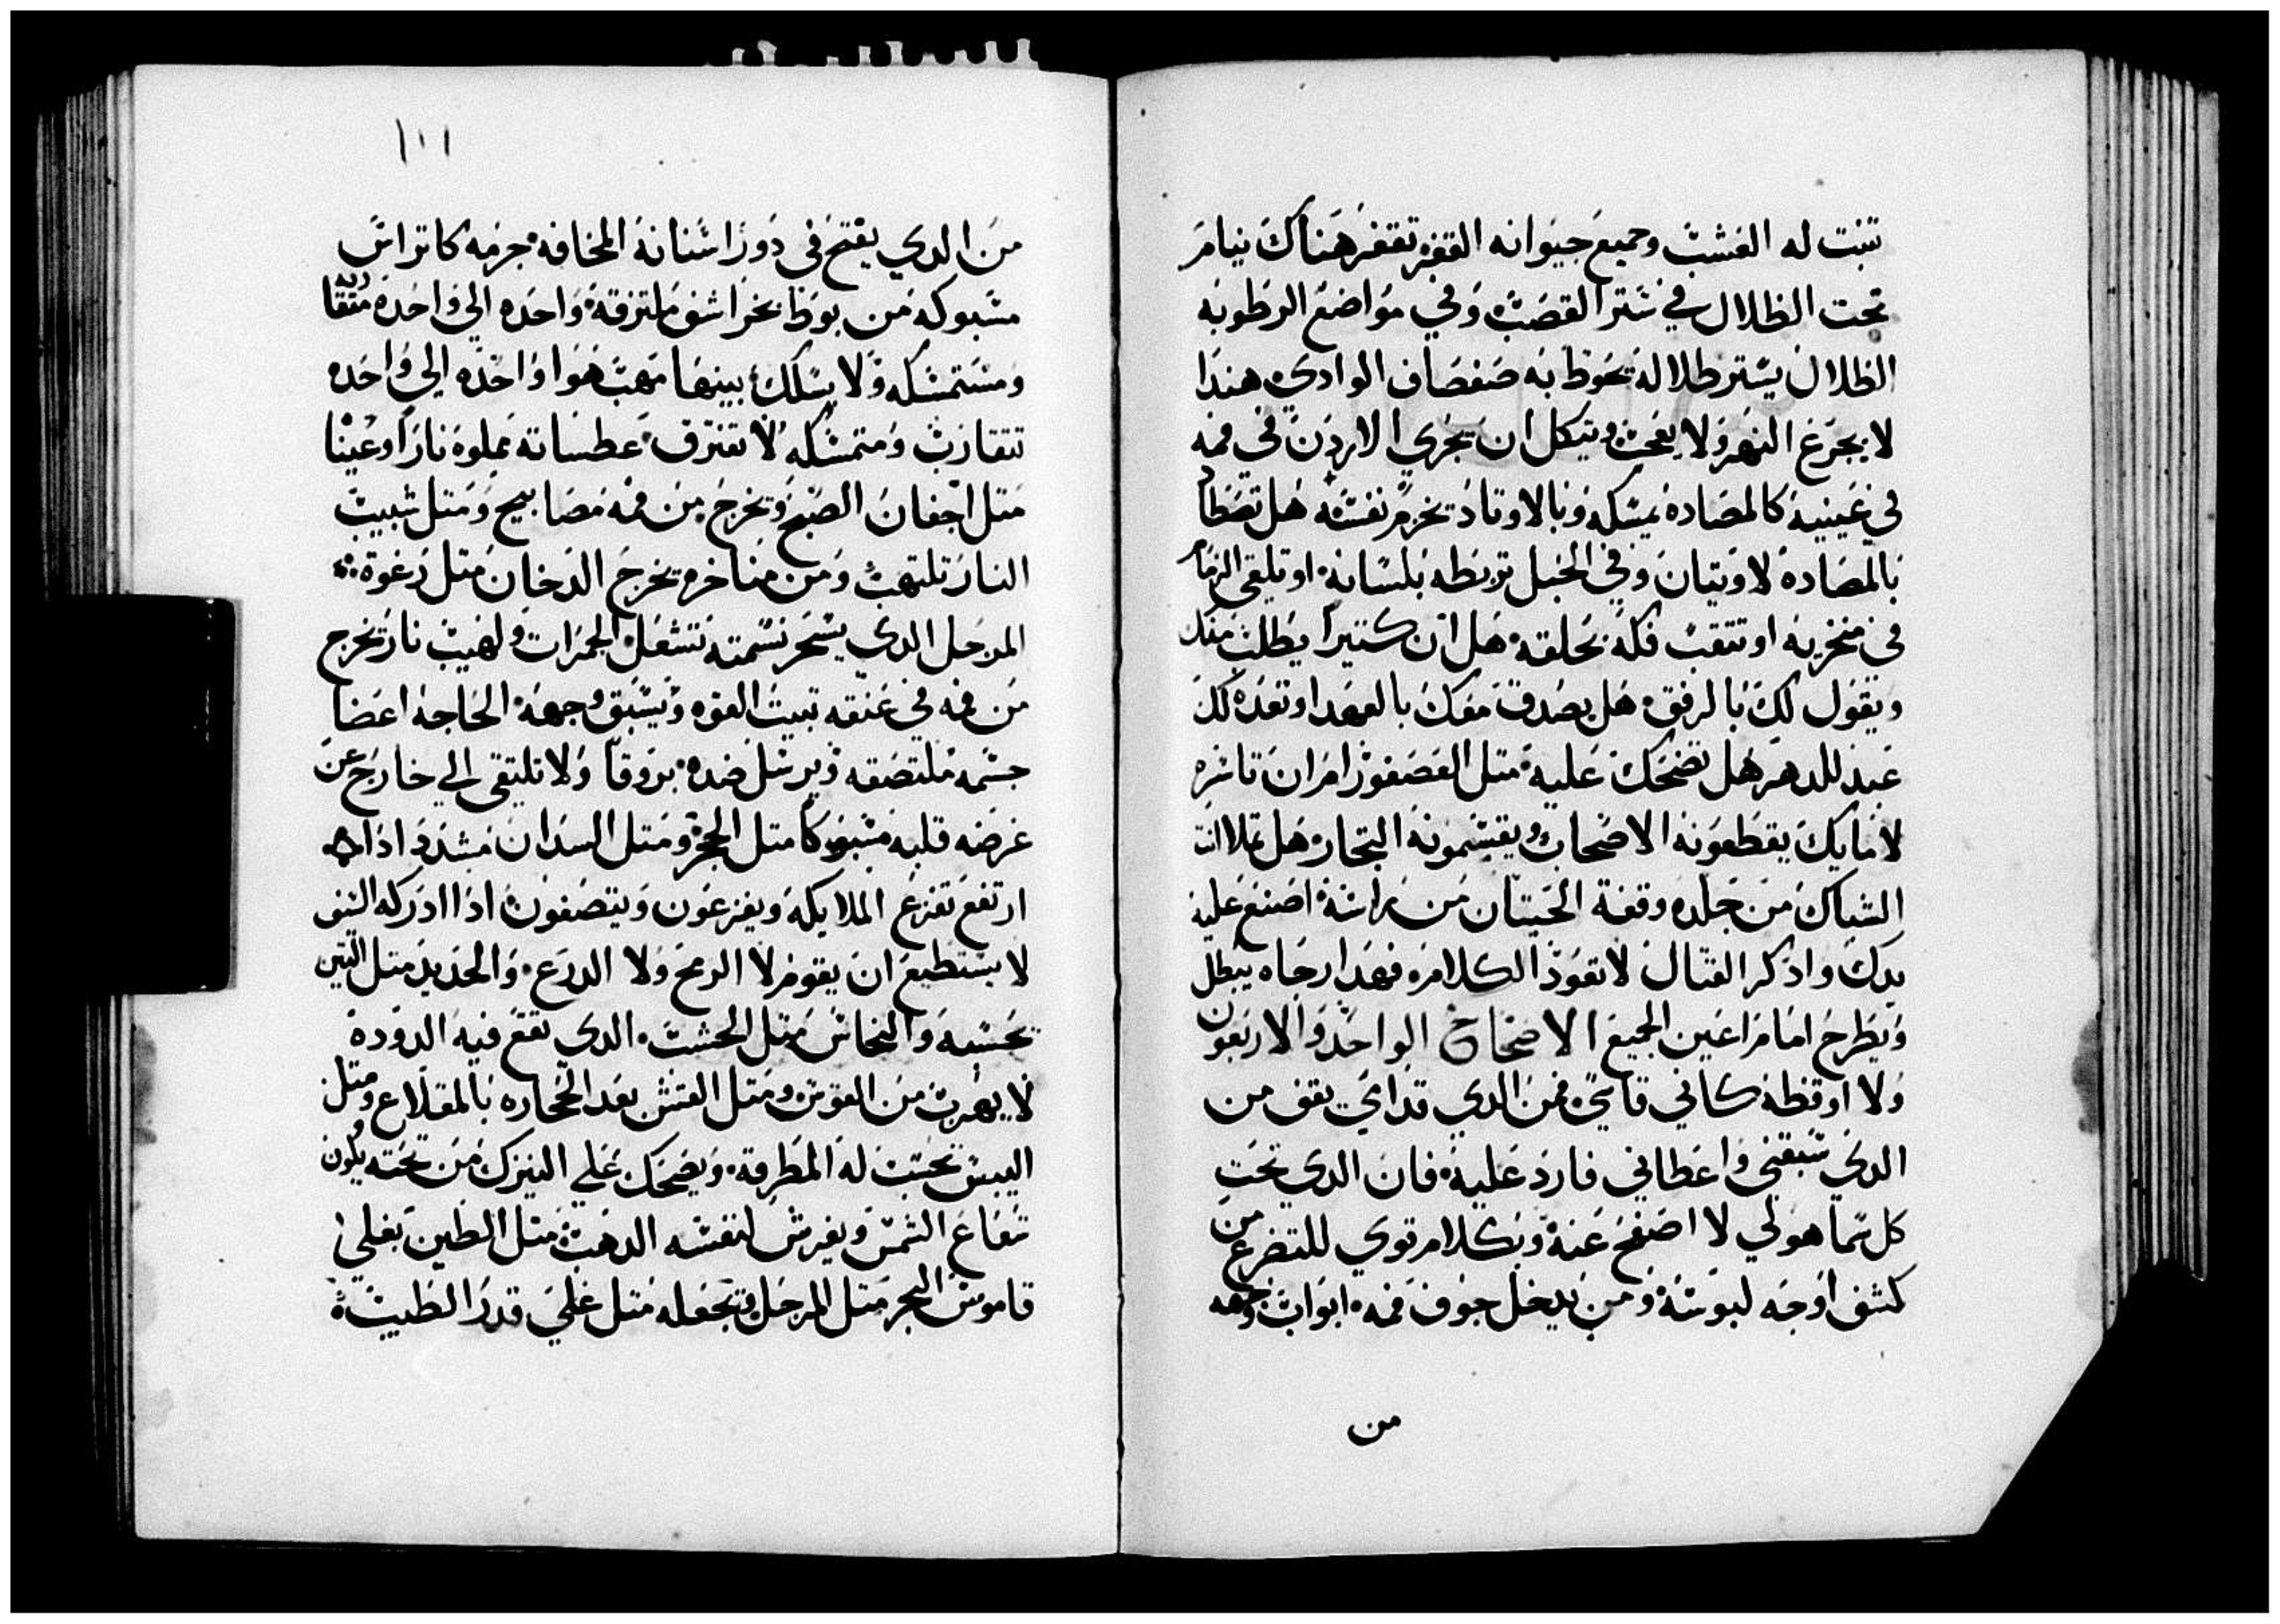 تنبت له العشب وجميع حيوانه القفره تقفز هناك ينام
تحت الظلال في ستر القصب وفي مواضع الرطوبه
الظلال يستر ظلاله تحوط به صفصاف الوادي هندا
لا يجرع النهر ولا يعجب ويتكل ان يجري الاردن في فمه
في عينيه كالمصاده يمسكه وبالاوتاد تخرم نفسه هل تصطاد
بالمصاده لاويتيان وفي الحبل تربطه بلسانه او تلقي الزمام
في منخريه او تثقب فكه بحلقه هل ان كتيرا يطلب منك
ويقول لك بالرفق هل يصدق معك بالعهد او تعده لك
عبد للدهر هل تضحك عليه متل العصفور امران تاسره
لامايك يقطعونه الاصحاب ويقسمونه التجار هل تملا انت
الشباك من جلده وقفة الحيتان من راسه اصنع عليه
يدك واذكر القتال لا تعود الكلام فهدا رجاه يبطل
ويطرح امام اعين الجميع الاصحاح الواحد والاربعون
ولا اوقظه كاني قاسي فمن الدي قداي يقف من
الدي سبقني واعطاني فارد عليه فان الدي تحت
كل سما هو لي لا اصفح عنه وبكلام قوي للتضرع من
كشف اوجه لبوسه ومن يدخل جوف فمه ابواب وجهه
من
١١١
من الدي يفتح في دور اسنانه المخافه جرمه كاتراس
مسبوكه من بوط بخراشف ملتزقه واحده الي واحده متقاربه
ومستمسكه ولا يسلك بينها مهب هوا واحده الي واحده
تتقارب ومتمسكه لا تفترق عطساته مملوه نارا وعينا
متل اجفان الصبح وتخرج من فمه مصابيح ومتل شبيب
النار تلتهب ومن مناخره تخرج الدخان متل رغوة
المرجل الدي يسحر نسمته تشعل الجمرات ولهيب نار تخرج
من فمه في عنقه تبيت القوه وتسبق وجهه الحاجه اعضا
جسمه ملتصقه ويرسل ضده بروقا ولا تلتقي الي خارج عن
غرضه قلبه مسبوكا متل الحجر ومتل السدان مشدد اذا
ارتفع تفزع الملايكه ويفزعون ويتصفون اذا ادركه السيف
لا يستطيع ان يقوم لا الرمح ولا الدرع والحديد متل التبن
تحسبه والنحاس متل الخشب الدي تقع فيه الدوده
لا يهرب من القوس ومتل القش يعد الحجاره بالمقلاع ومتل
اليبس تحسب له المطرقه ويضحك علي النيزك من تحته يكون
شعاع الشمس ويفرش لنفسه الدهب متل الطين بغلي
قاموس البحر متل المرجل وتجعله متل غلي قدر الطيب